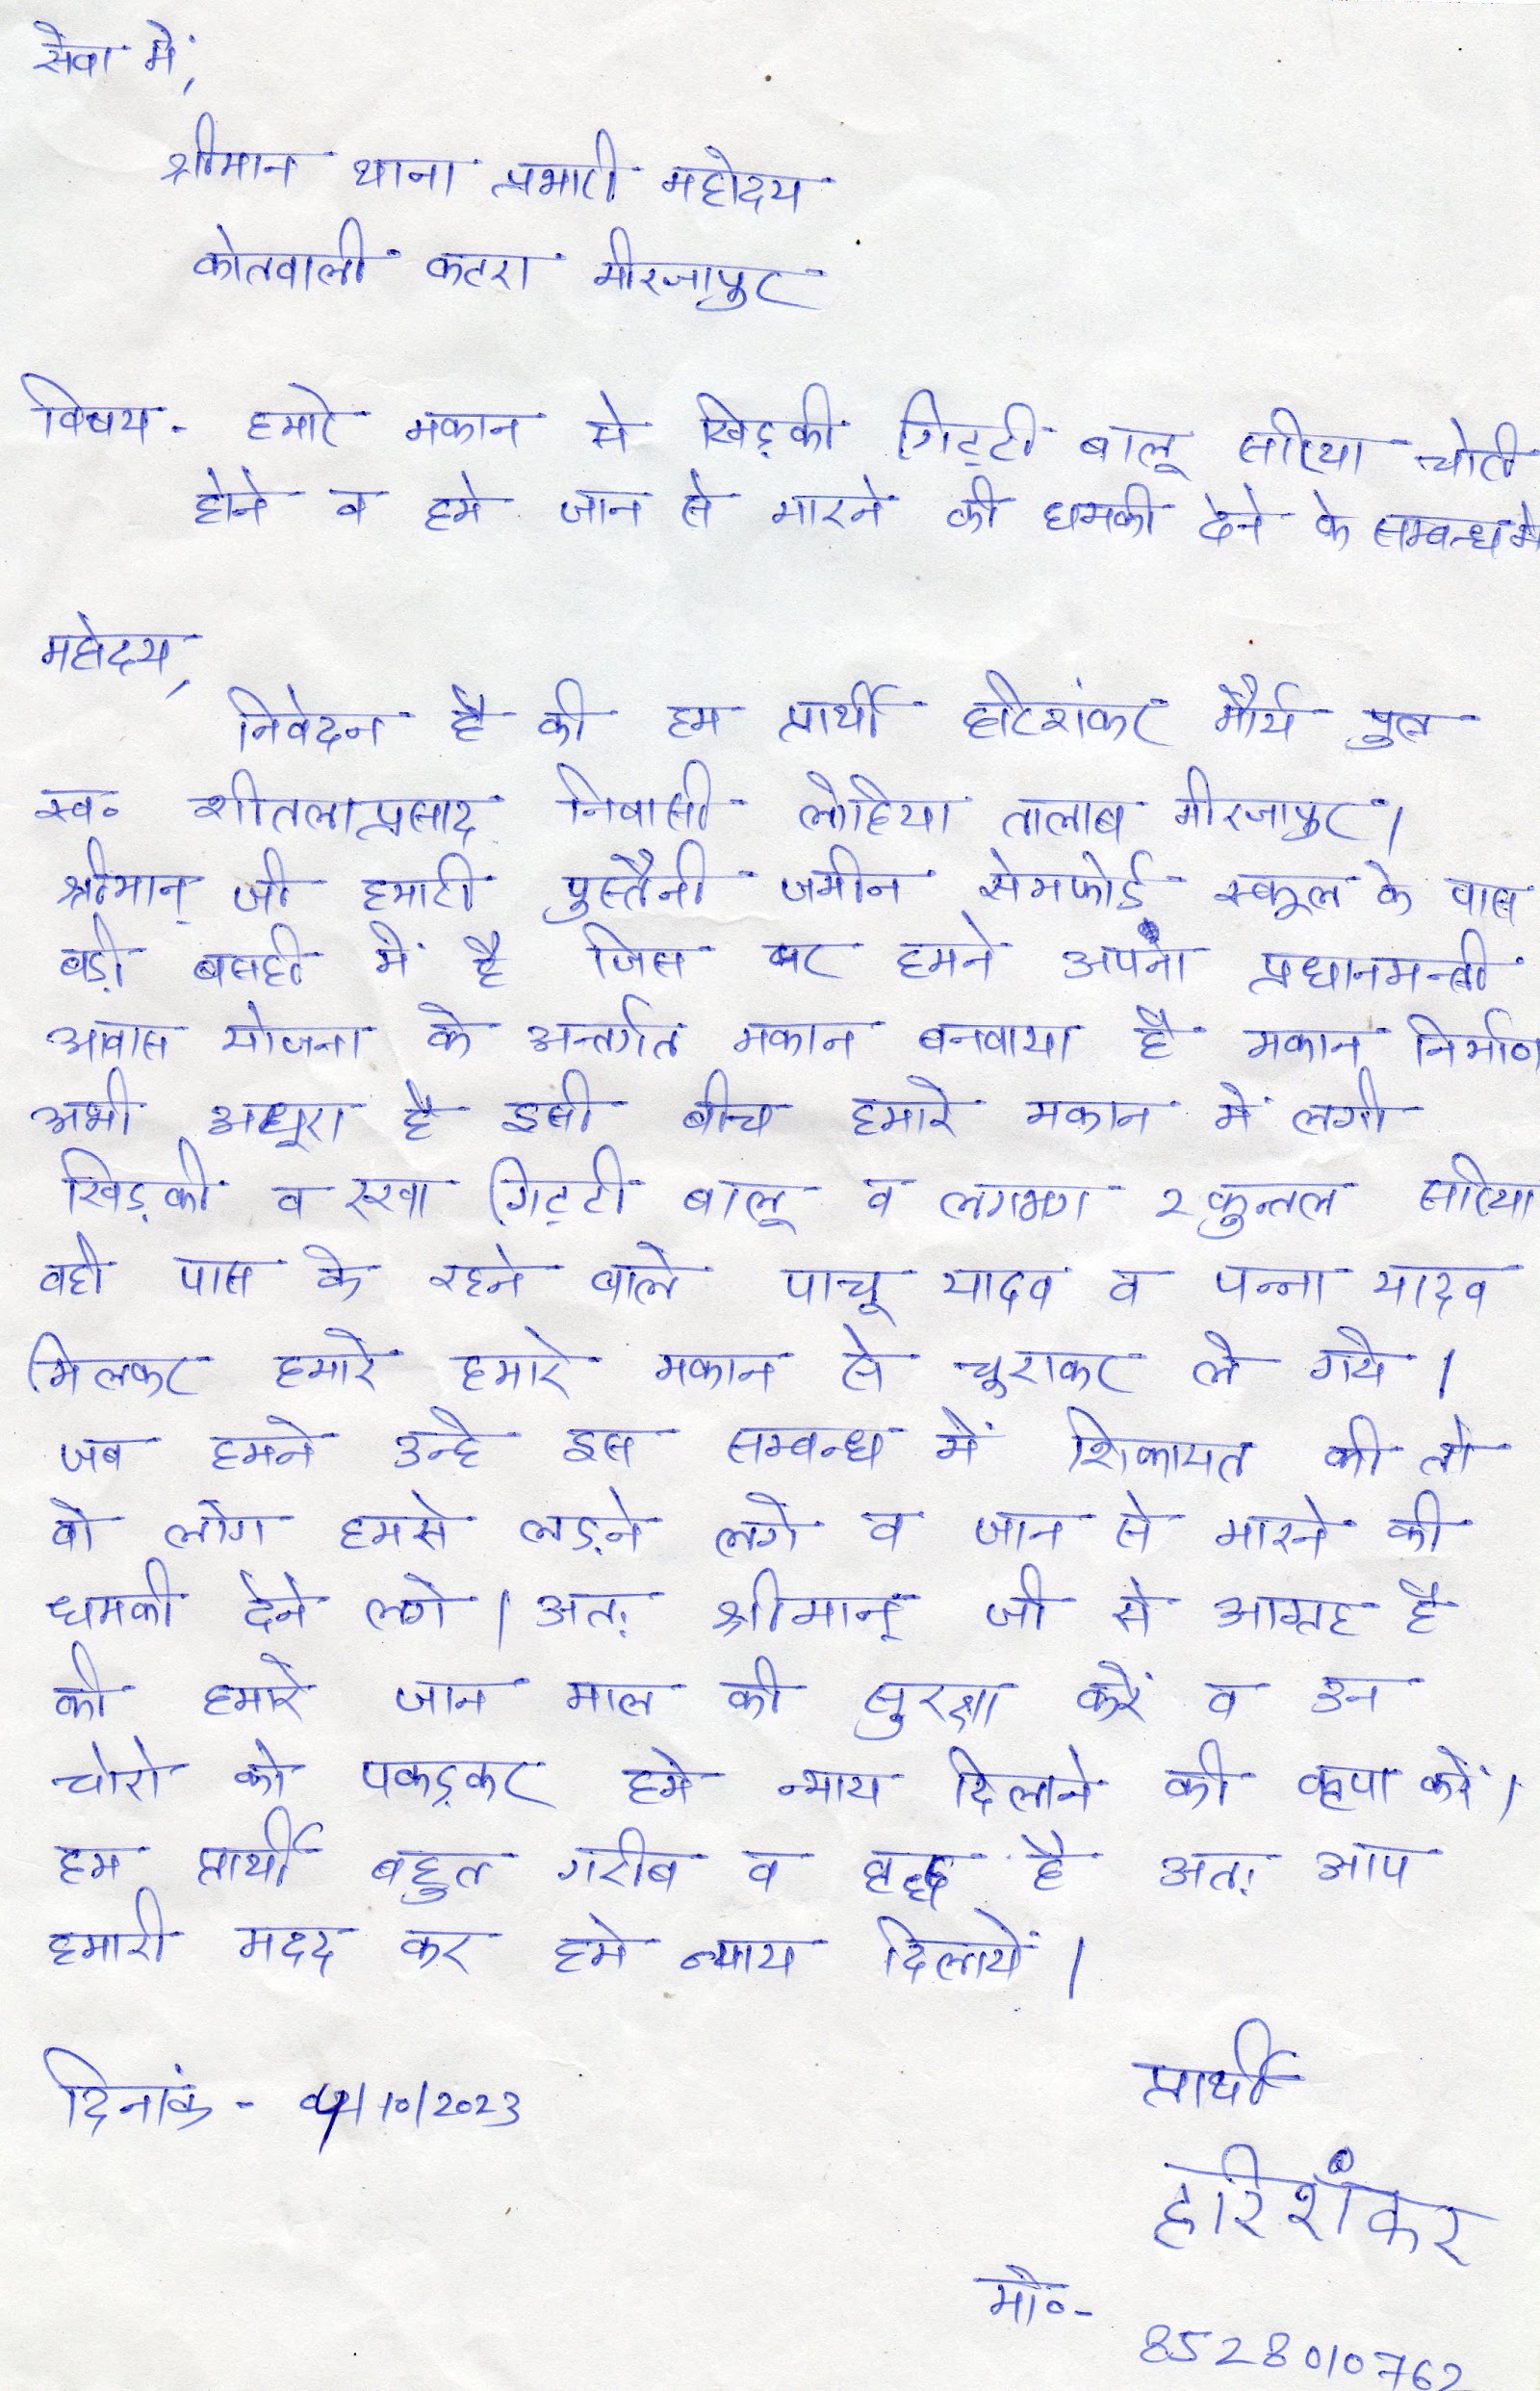 सेवा में,
श्रीमान थाना प्रभारी महोदय
कोतवाली कटरा मीरजापुर
विषय - हमारे मकान से खिड़की गिट्टी बालू सरिया चोरी
होने व हमे जान से मारने की धमकी देने के सम्बन्ध मे
महोदय,
निवेदन है की हम प्रार्थी हरिशंकर मौर्य पुत्र
स्व० शीतलाप्रसाद निवासी लोहिया तालाब मीरजापुर।
श्रीमान् जी हमारी पुस्तैनी जमीन सेमफोर्ड स्कूल के पास
बड़ी बसही में है जिस पर हमने अपना प्रधानमन्त्री
आवास योजना के अन्तर्गत मकान बनवाया है मकान निर्माण
अभी अधूरा है इसी बीच हमारे मकान में लगी
खिड़की व रखा गिट्टी बालू व लगभग 2 कुन्तल सरिया
वही पास के रहने वाले पाचू यादव व पन्ना यादव
मिलकर हमारे हमारे मकान से चुराकर ले गये।
जब हमने उन्हे इस सम्बन्ध में शिकायत की तो
वो लोग हमसे लड़ने लगे व जान से मारने की
धमकी देने लगे। अतः श्रीमान् जी से आग्रह है
की हमारे जान माल की सुरक्षा करें व उन
चोरो को पकड़कर हमे न्याय दिलाने की कृपा करें।
हम प्रार्थी बहुत गरीब व वृद्ध है अतः आप
हमारी मदद कर हमे न्याय दिलायें।
प्रार्थी
दिनांक - 04/10/2023
हरिशंकर
मो०-
8528010762